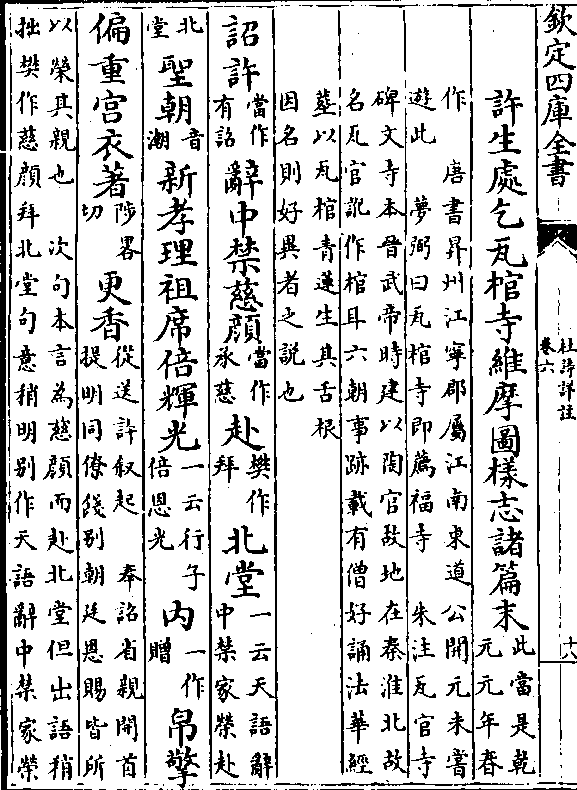 欽定四庫全書
杜詩詳註
卷六
十八
許生處乞瓦棺寺維摩圖樣志諸篇末此當是乾元元年春
作 唐書昇州江寧郡屬江南東道公開元末嘗
遊此 夢弼曰瓦棺寺即薦福寺 朱注瓦官寺
碑文寺本晉武帝時建以陶官故地在秦淮北故
名瓦官訛作棺耳六朝事跡載有僧好誦法華經
墓以瓦棺青蓮生其舌根
因名則好異者之說也
詔許當作有詔辭中禁慈顔當作承慈赴樊作拜北堂一云天語辭中禁家榮赴
北堂聖朝音潮新孝理祖席倍輝光一云行子倍恩光內一作贈帛擎
偏重宫衣著陟畧切更香從送許叙起 奉詔省親開首提明同僚餞别朝廷恩賜皆所
以榮其親也 次句本言為慈顔而赴北堂但出語稍
拙樊作慈顔拜北堂句意稍明别作天語辭中禁家榮